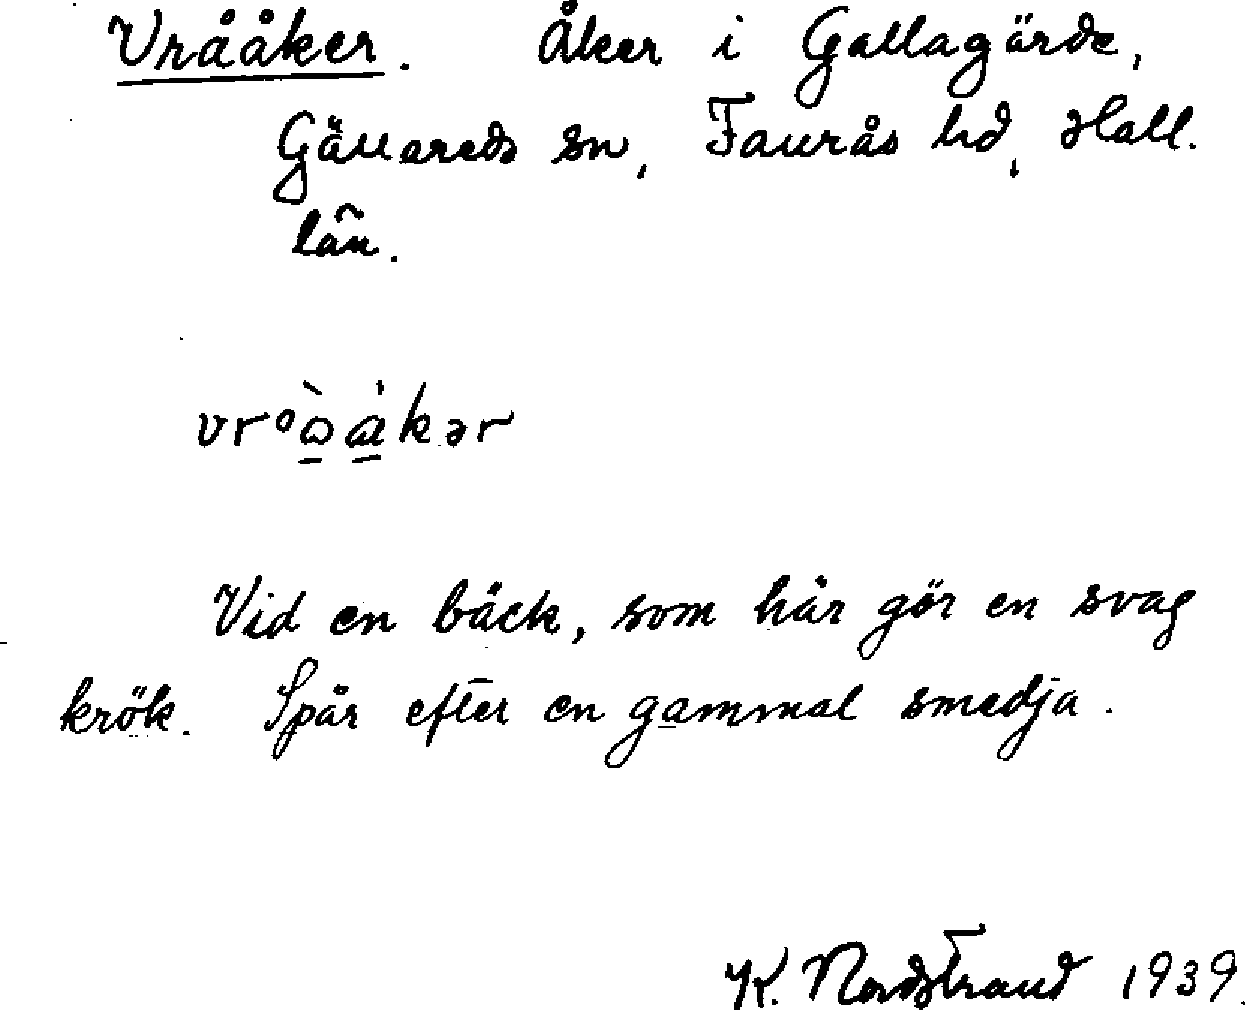 Vrååker. Åker i Gallagärde,
Gällareds sn, Faurås hd, Hall.
län.
vrºὼákər
Vid en bäck, som här gör en svag
krök. Spår efter en gammal smedja.
K. Nordstrand 1939.